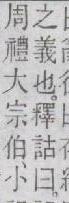 之義也釋詁曰
周禮大宗伯小